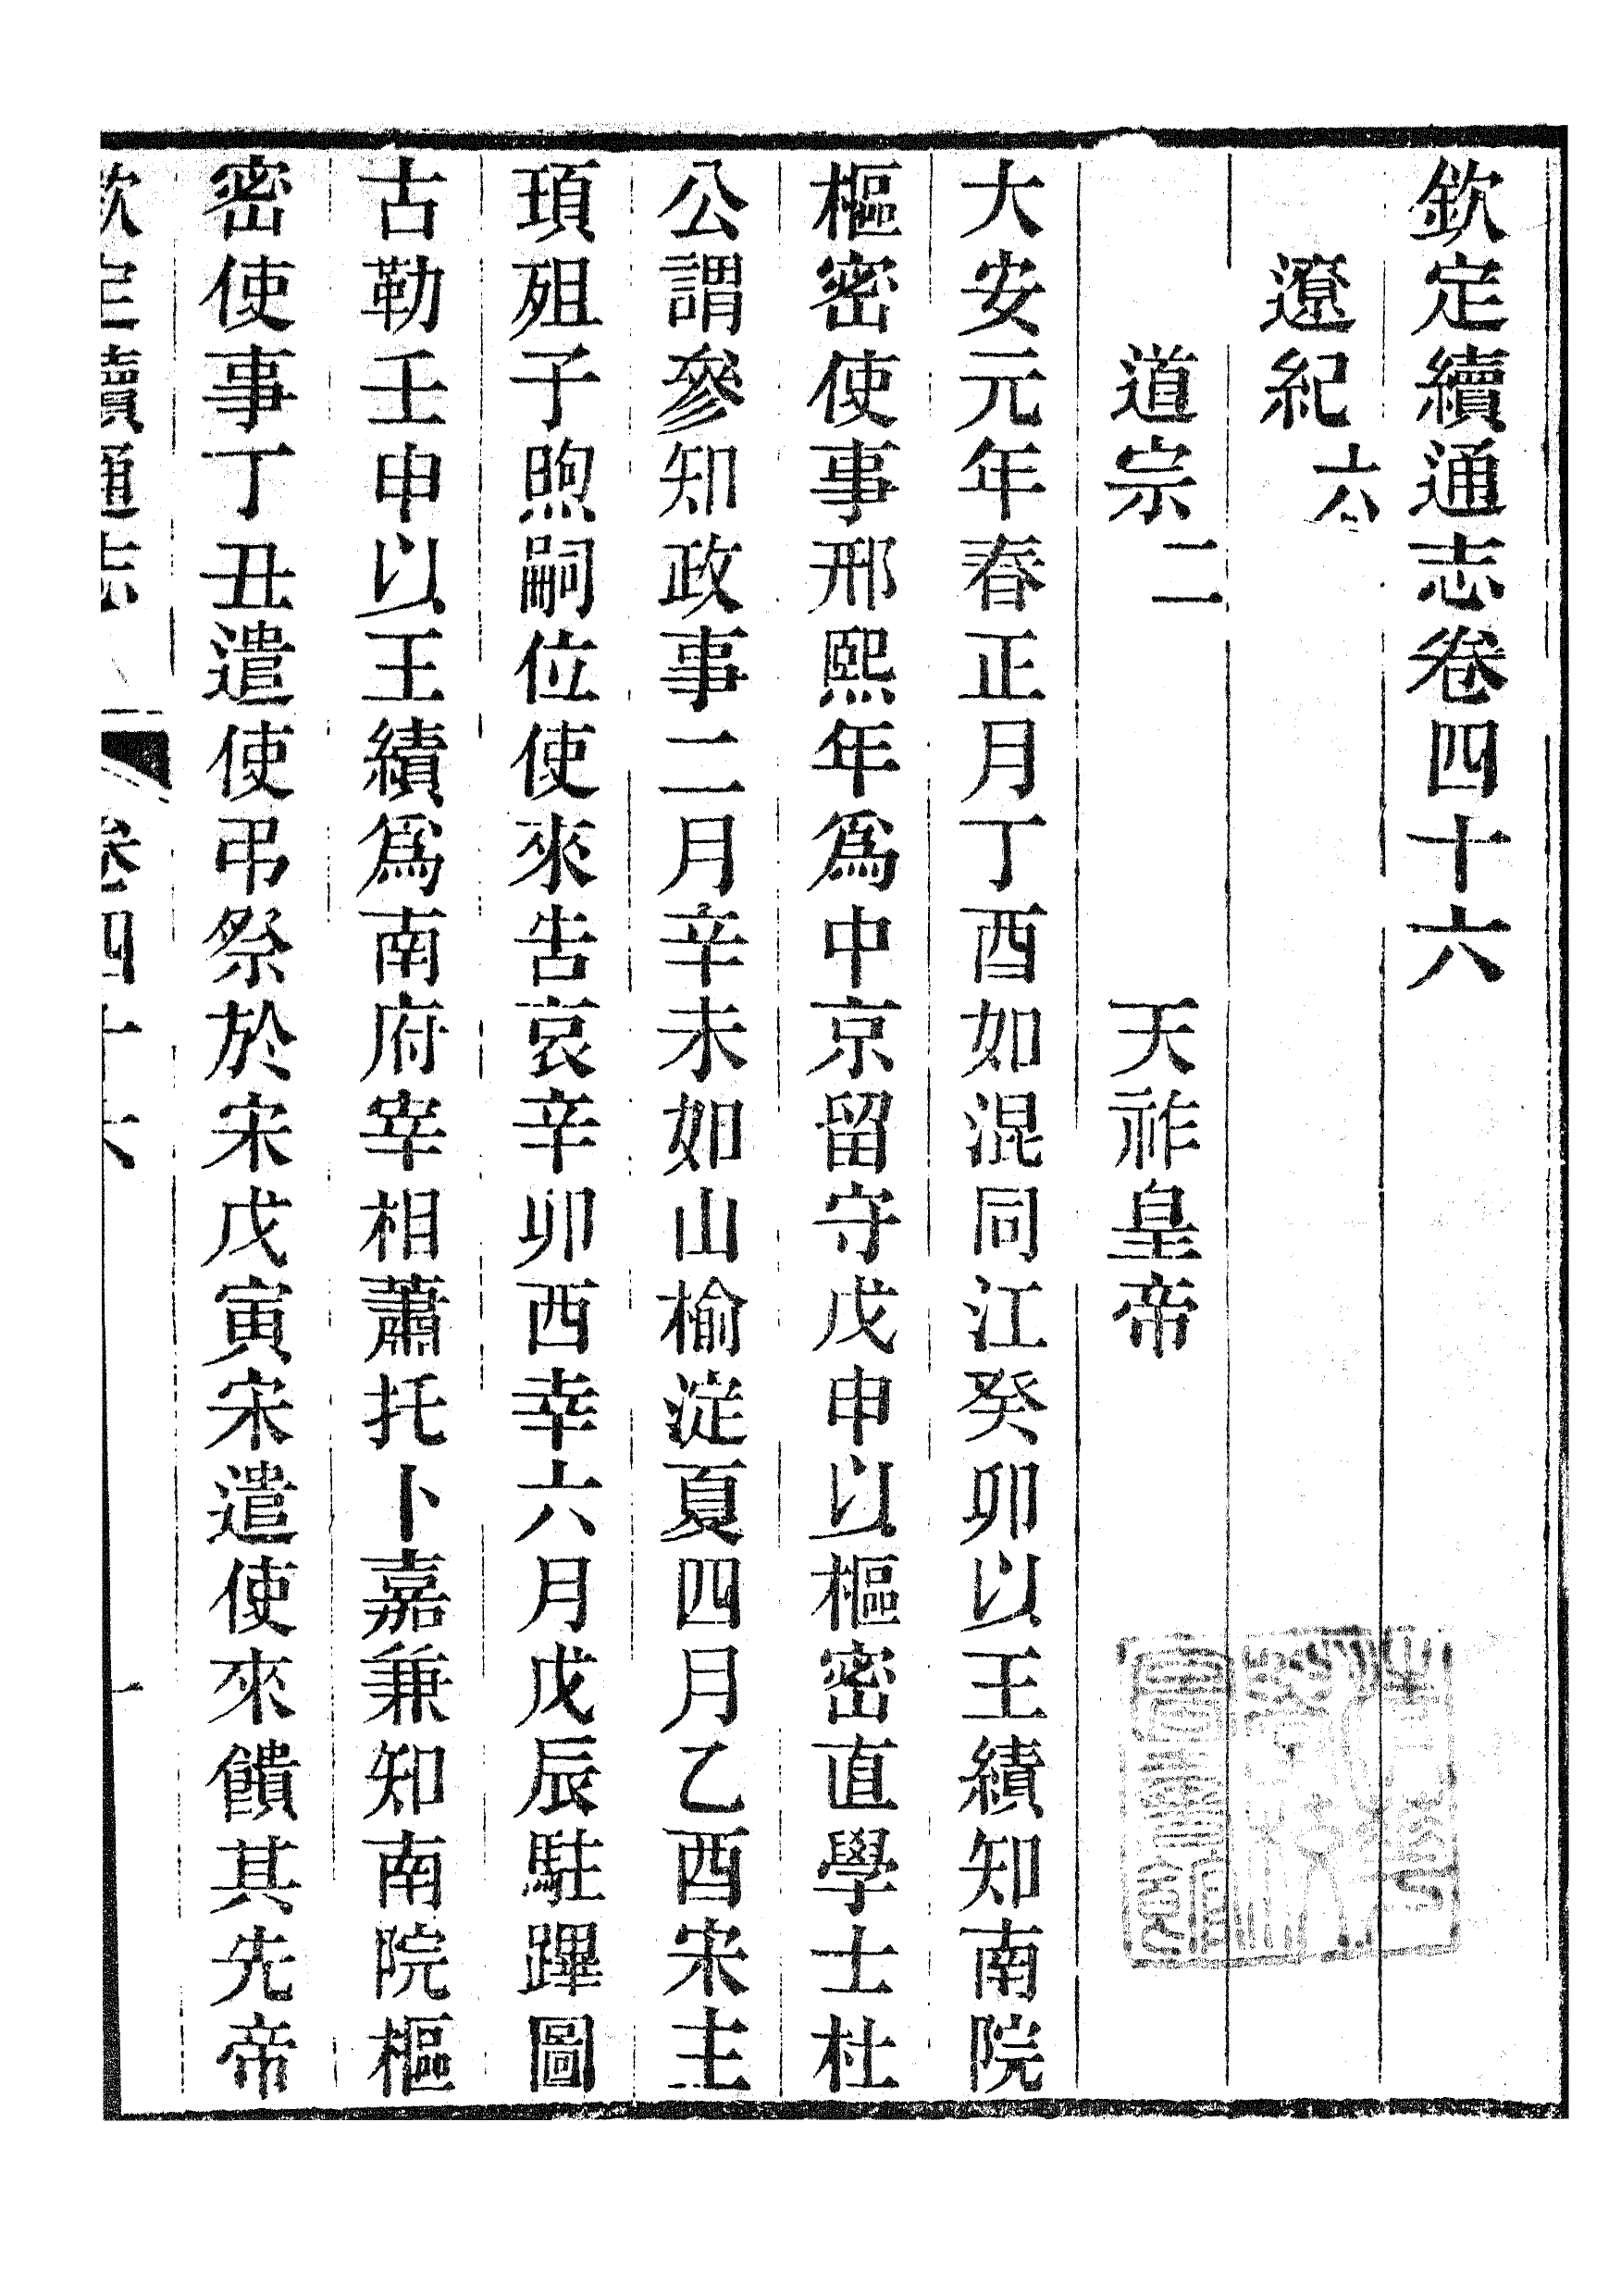 欽定續通志卷四十六
遼紀六
道宗二 天祚皇帝
大安元年春正月丁酉如混同江癸卯以王績知南院
樞密使事邢熙年爲中京留守戊申以樞密直學士杜
公謂參知政事二月辛未如山榆淀夏四月乙酉宋主
頊殂子煦嗣位使來告哀辛卯西幸六月戊辰駐蹕圖
古勒壬申以王績爲南府宰相蕭托卜嘉兼知南院樞
密使事丁丑遣使弔祭於宋戊寅宋遣使來饋其先帝
欽定續通志 卷四十六 一